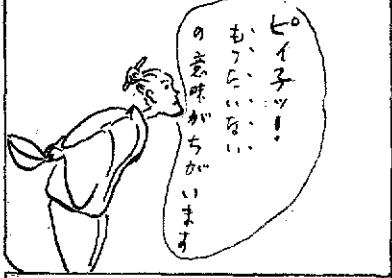 ピイ子ッ!
もったいない
の意味がちがいます